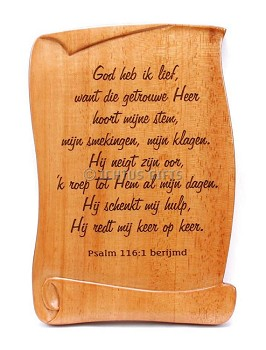 God heb ik lief,
want die getrouwe Heer
hoort mijne stem,
mijn smekingen, mijn klagen.
Hij neigt zijn oor,
'k roep tot Hem al mijn dagen.
Hij schenkt mij hulp,
Hij redt mij keer op keer.
Psalm 116:1 berijmd
© ICHTUS-GIFTS